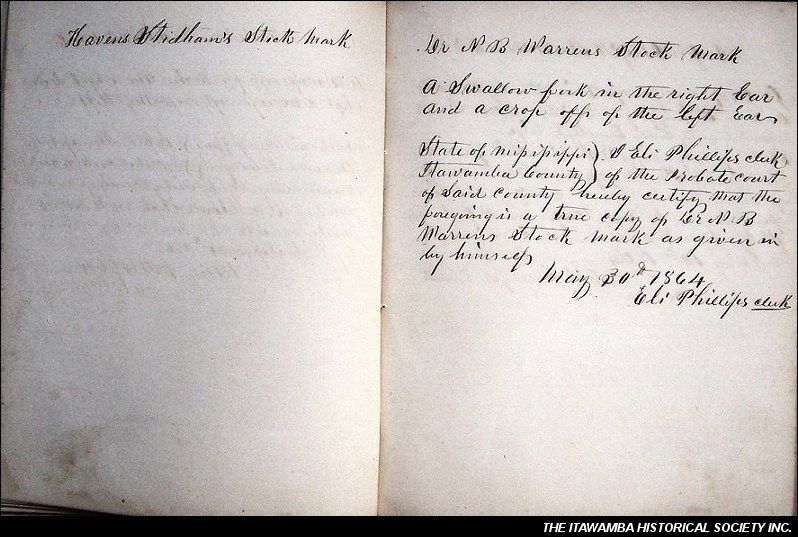 Havens Stidham's Stock Mark
Dr N B Warrens Stock Mark
A Swallow fork in the right Ear
and a crop off of the left Ear
State of Mississippi } I Eli Phillips clerk
Itawamba County } of the Probate court
of Said County hereby certify that the
foregoing is a true copy of Dr N B
Warrens Stock Mark as given in
by himself
May 30th 1864
Eli Phillips clerk
THE ITAWAMBA HISTORICAL SOCIETY INC.